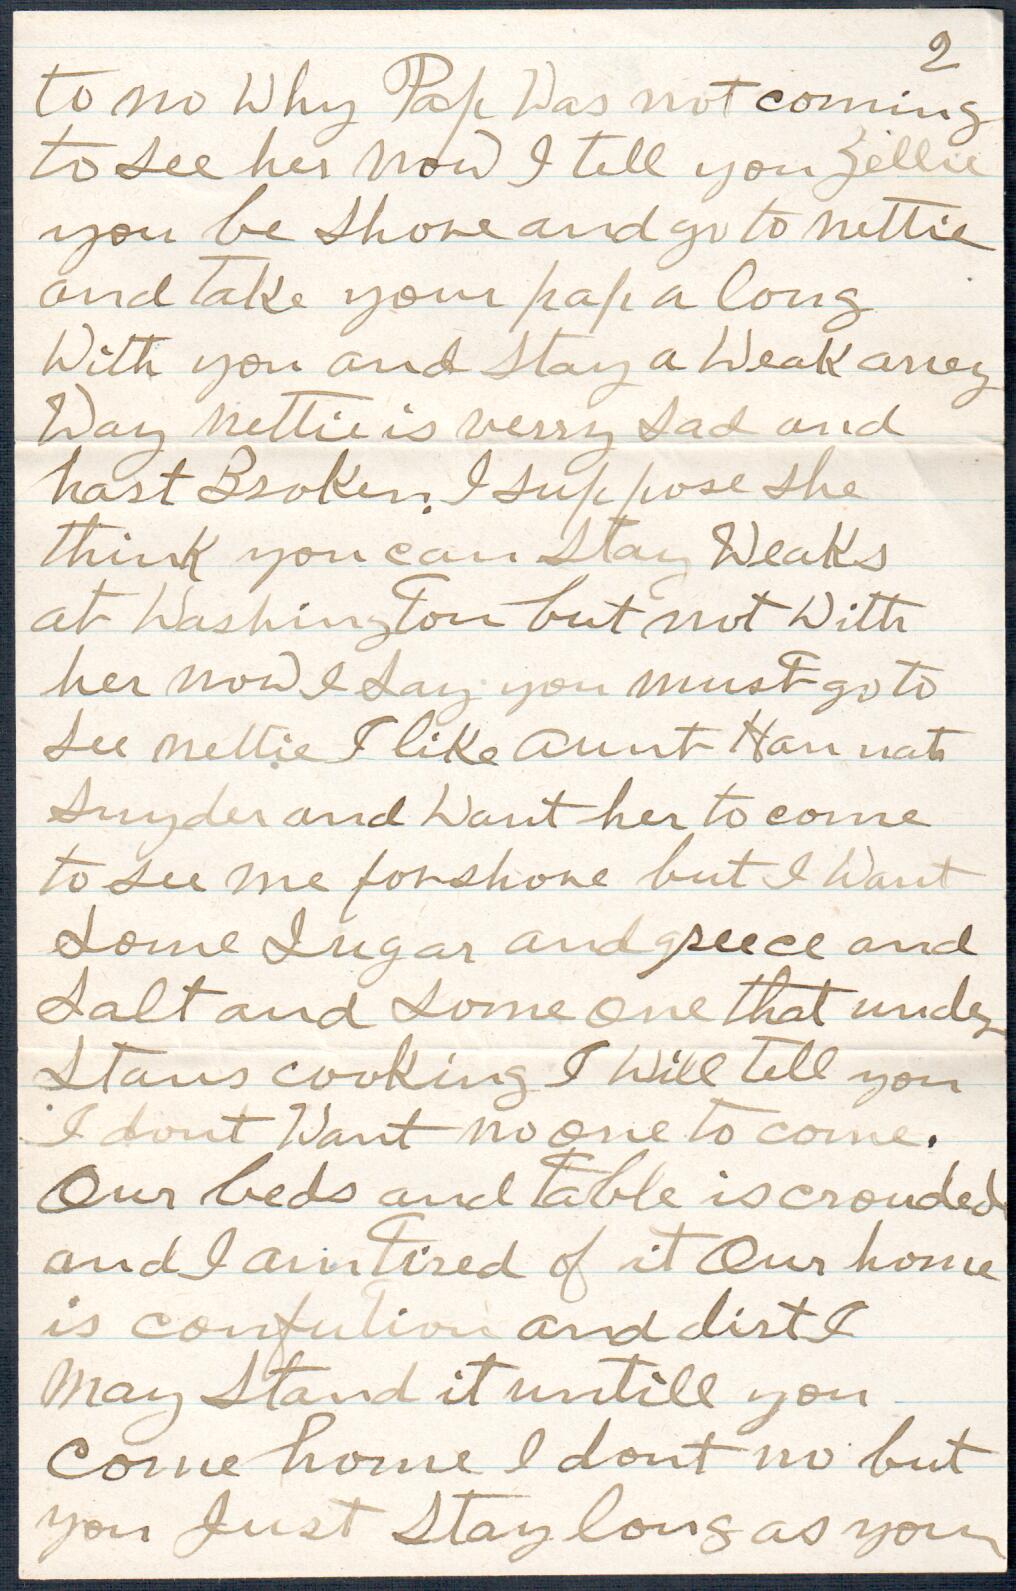 2
to no Why Pap Was not coming
to see her now I tell you Zellie
you be shore and go to nettie
and take your pap a long
With you and stay a Weak aney
Way nettie is verry sad and
hart Broken. I suppose she
think you can stay Weaks
at Washington but not With
her now I say you must go to
see nettie I like aunt Hannah
Snyder and Want her to come
to see me for shore but I Want
some Sugar and greece and
salt and some one that under
stans cooking I Will tell you
I dont Want no one to come.
Our beds and table is crouded
and I am tired of it Our home
is confution and dirt I
may stand it untill you
come home I dont no but
you Just stay long as your